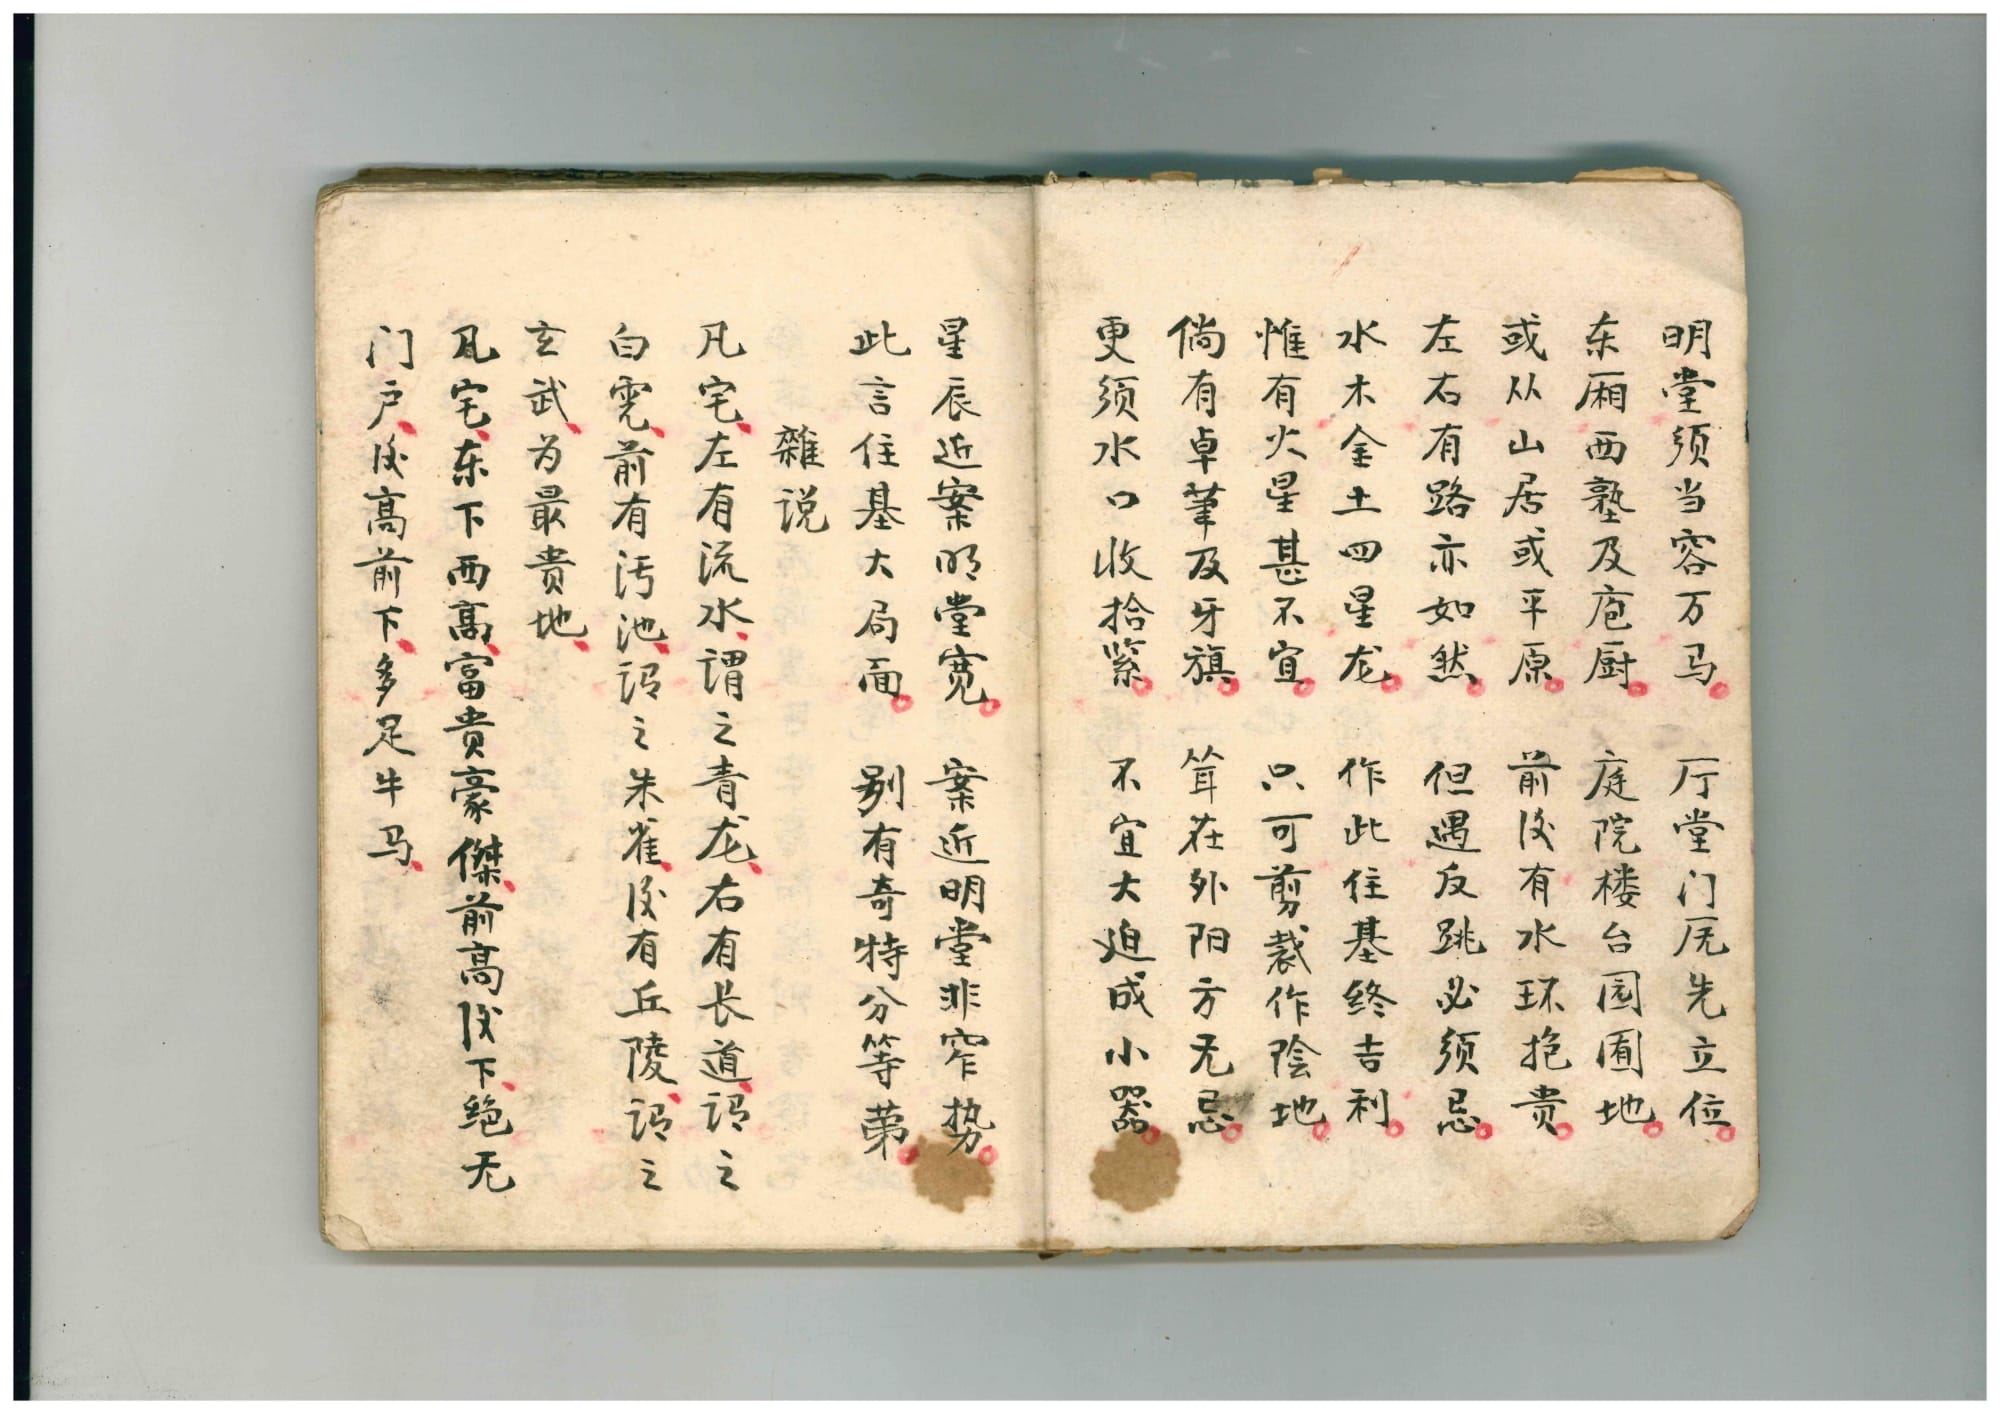 明堂须当容万马。 厅堂门庑先立位。
东厢西塾及庖厨。 庭院楼台园圃地。
或从山居或平原。 前后有水环抱贵。
左右有路亦如然。 但遇反跳必须忌。
水木金土四星龙。 作此住基终吉利。
惟有火星甚不宜。 只可剪裁作陰地。
倘有卓筆及牙旗。 耸在外阳方无忌。
更须水口收拾紧。 不宜大迫成小器。
星辰近案明堂宽。 案近明堂非窄势。
此言住基大局面。 别有奇特分等第。
雜说
凡宅、左有流水、谓之青龙、右有长道、谓之
白虎、前有污池、谓之朱雀、后有丘陵、谓之
玄武、为最贵地、
凡宅、东下西高、富贵豪傑、前高后下、绝无
门户、后高前下、多足牛马、